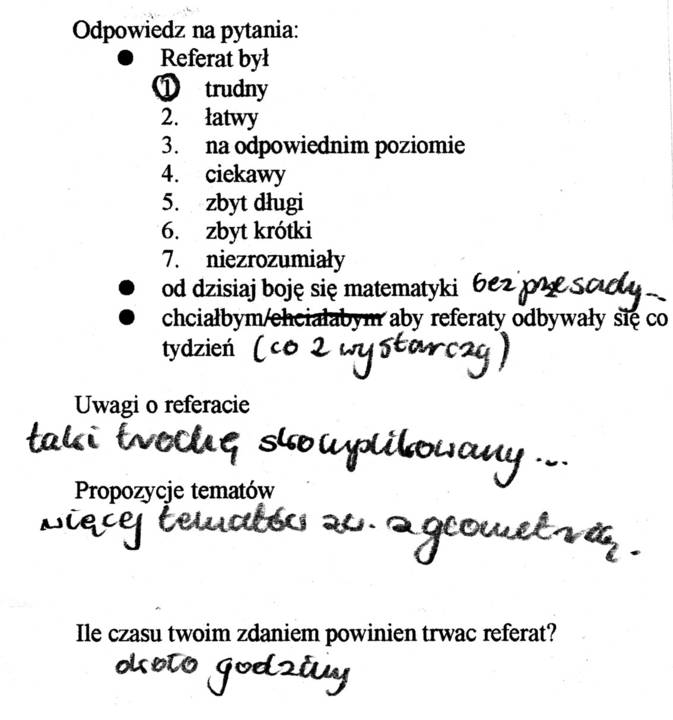 Odpowiedz na pytania:
● Referat był
① trudny
2. łatwy
3. na odpowiednim poziomie
4. ciekawy
5. zbyt długi
6. zbyt krótki
7. niezrozumiały
● od dzisiaj boję się matematyki bez przesady...
● chciałbym/chciałabym aby referaty odbywały się co
tydzień (co 2 wystarczy)
Uwagi o referacie
taki trochę skomplikowany...
Propozycje tematów
więcej tematów zw. z geometrią.
Ile czasu twoim zdaniem powinien trwac referat?
około godziny